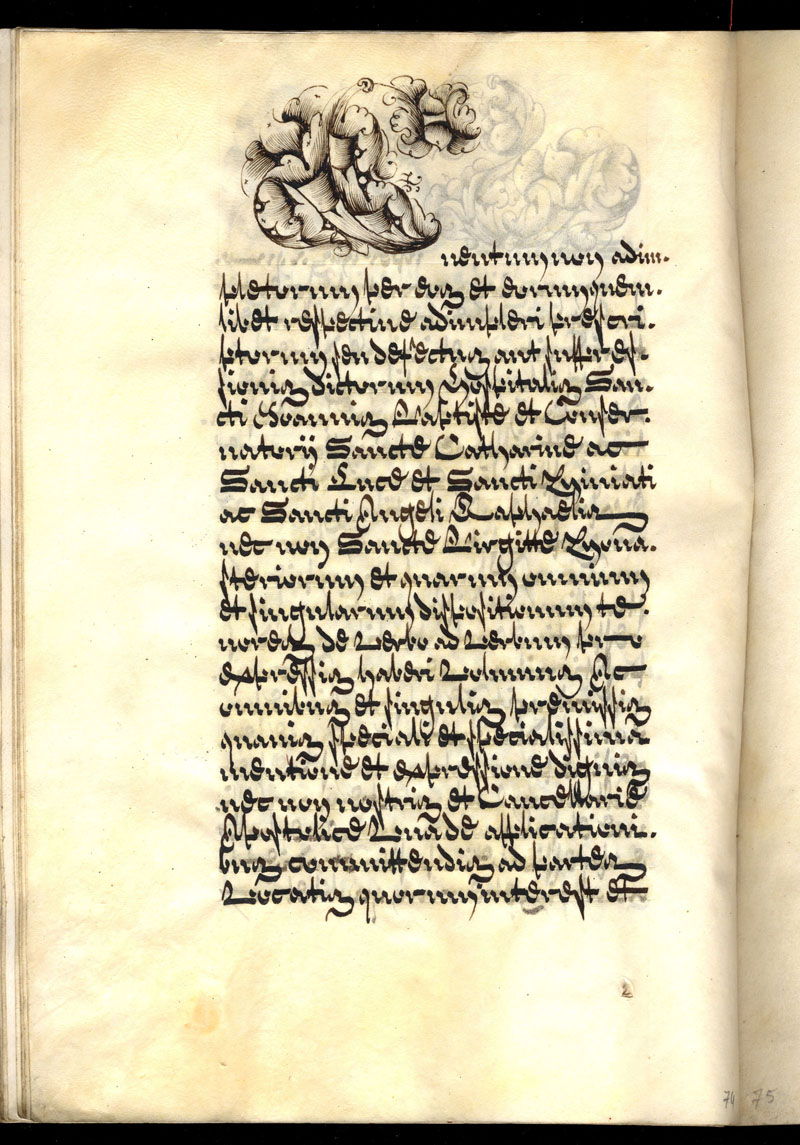 nentium non adim-
pletorum per eos et eorum quem-
libet respective adimpleri prescri-
ptorum seu defectus aut suppres-
sionis dictorum Hospitalis San-
cti Joannis Baptiste et Conser-
natorij Sancte Catharine ac
Sancti Luce et Sancti Miniati
ac Sancti Angeli Raphaelis
nec non Sancte Birgitte Mona-
steriorum et quarum omnium
et singularum dispositionum te-
nores de verbo ad verbum pro
expressis haberi volumus Ac
omnibus et singulis premissis
quavis speciali et specialissima
mentione et expressione dignis
nec non nostris et Cancellarie
Apostolice de applicationi-
bus committendis ad partes
vocatis quorum interest et
2
74 75